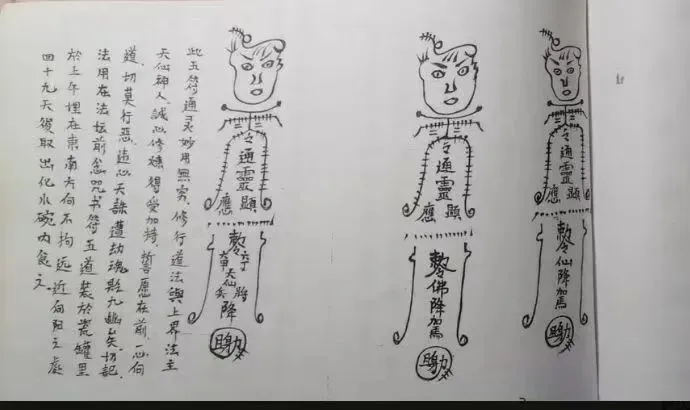 令通靈
顯應
勅令仙降駕
令通靈
顯應
勅令佛降駕
令通靈
顯應
天仙
降
此五符通灵妙用無穷。修行道法與上界法主
天仙神人,誠心修煉得受加持,誓愿在前,一心向
道,切莫行惡,造心天誅遭劫魂貶九幽矣,切記
法用在法坛前念咒书符五道装於瓷罐里
於上午埋在東南方向不拘远近向阳之處
四十九天後取出化水碗内食之